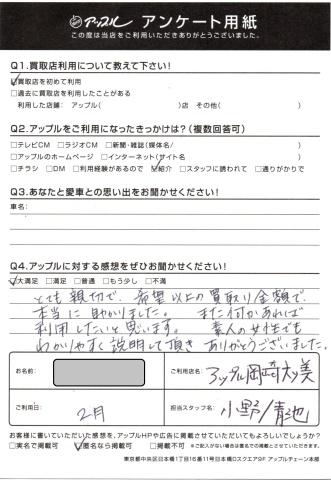 アップル アンケート用紙
この度は当店をご利用いただきありがとうございました。
Q1.買取店利用について教えて下さい!
☑買取店を初めて利用
□過去に買取店を利用したことがある
利用した店舗: アップル( )店 その他( )
Q2.アップルをご利用になったきっかけは?(複数回答可)
□テレビCM □ラジオCM □新聞・雑誌(媒体名/ )
□アップルのホームページ □インターネット(サイト名 )
□チラシ □DM □利用経験があるので ☑紹介 □スタッフに誘われて □通りがかりで
Q3.あなたと愛車との思い出をお聞かせください!
車名:
Q4.アップルに対する感想をぜひお聞かせください!
☑大満足 □満足 □普通 □もう少し □不満
とても親切で、希望以上の買取り金額で、
本当に助かりました。 また何かあれば
利用したいと思います。 素人の女性でも
わかりやすく説明して頂き ありがとうございました。
お名前:
ご利用店名: アップル岡崎大美
ご利用日: 2月
担当スタッフ名: 小野/青池
お客様に書いていただいた感想を、アップルHPや広告に掲載させていただいてもよろしいでしょうか?
□実名で掲載可 ☑匿名なら掲載可 □不可 ※ご記入がない場合は匿名での掲載とさせていただきます。
東京都中央区日本橋1丁目16番11号日本橋Dスクエア9F アップルチェーン本部